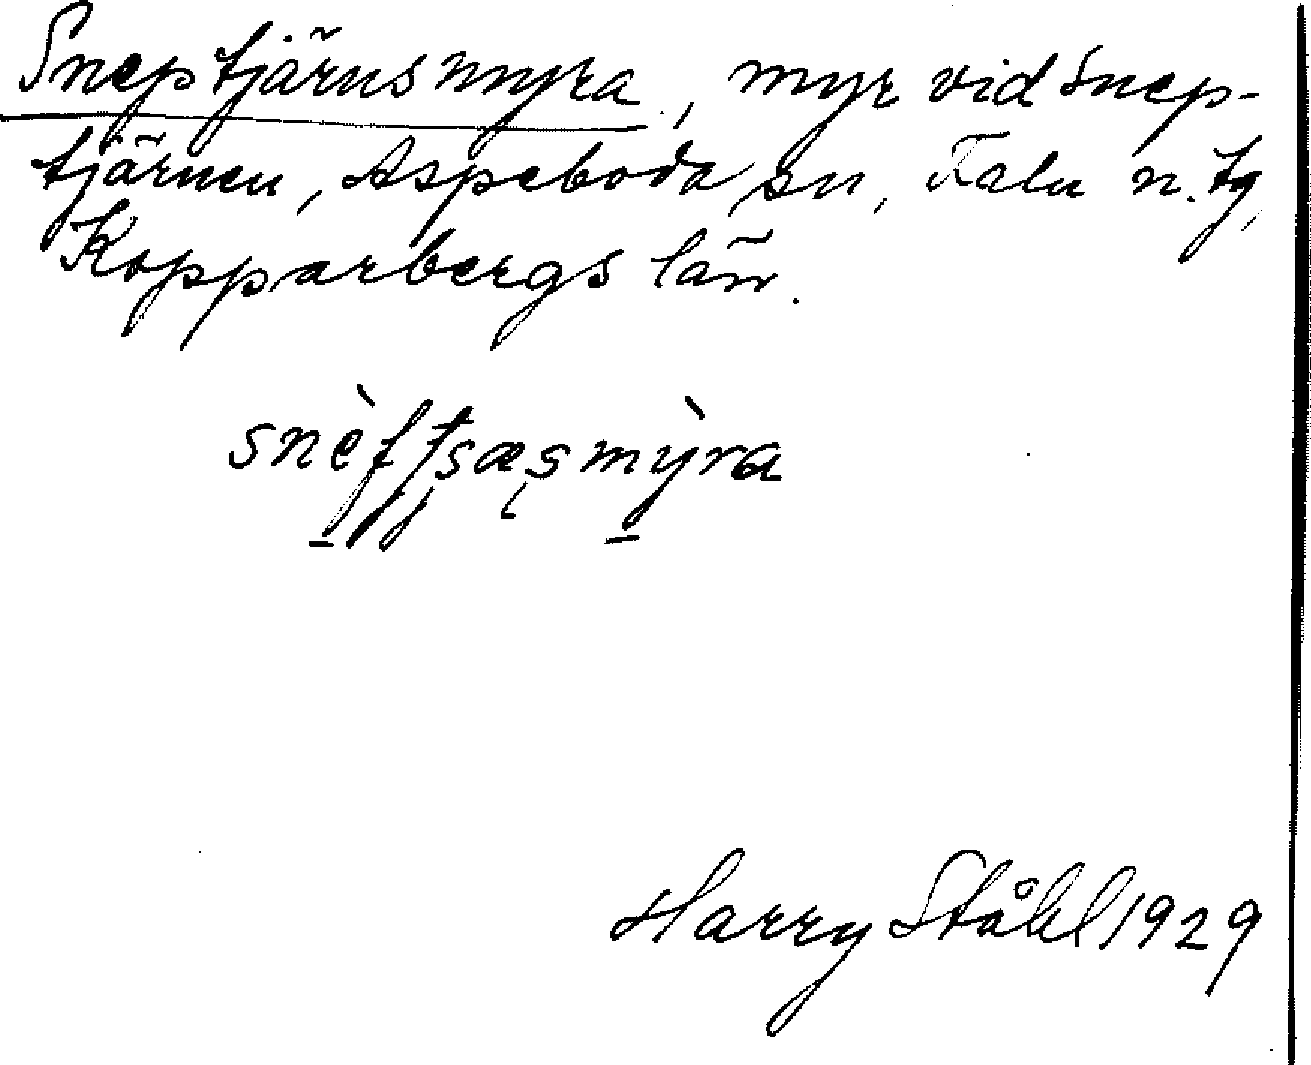 Sneptjärnsmyra, myr vid Snep-
tjärnen, Aspeboda sn, Falu n. tg,
Kopparbergs län.
Harry Ståhl 1929